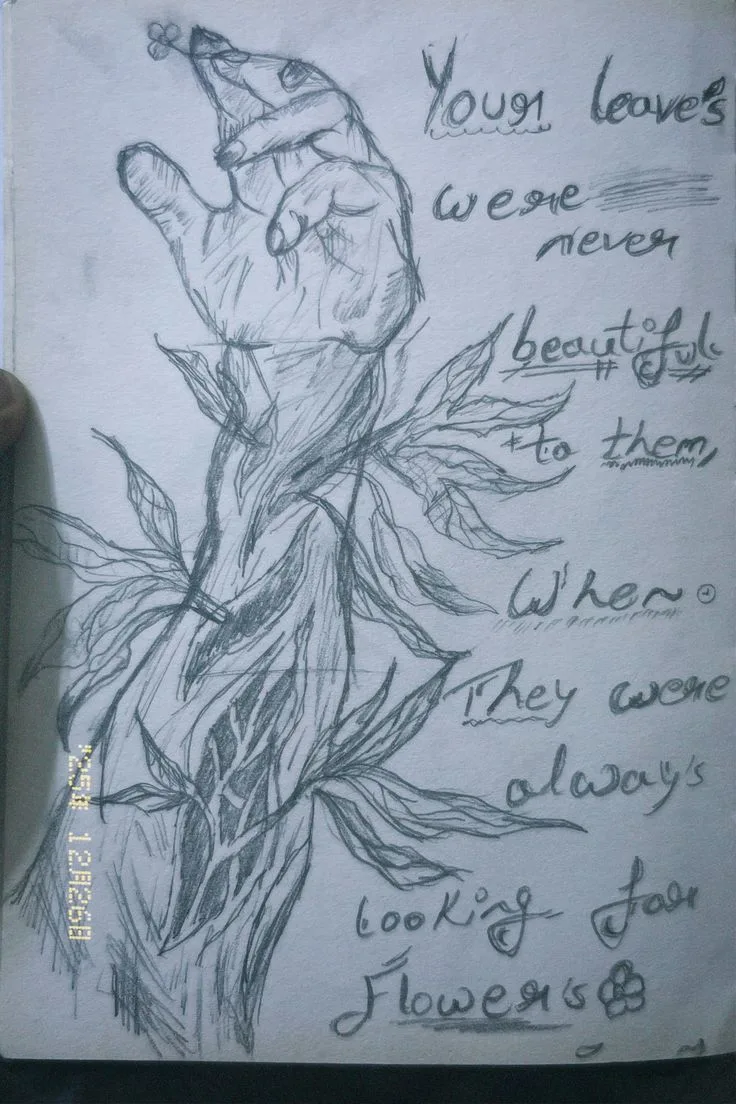 Your leave's
were
never
beautiful
to them,
When
They were
always
looking for
Flower's